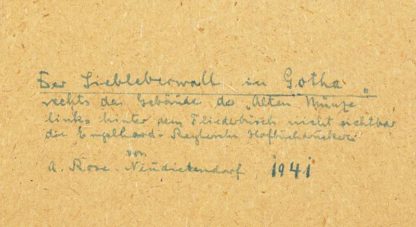 Der Siebleberwall in Gotha
rechts das Gebäude der „Alten Münze„
links hinter dem Fliederbüsch nicht sichtbar
die Engelhard-Reyhersche Hofbuchdruckerei
von
A. Rose. Neudietendorf 1941